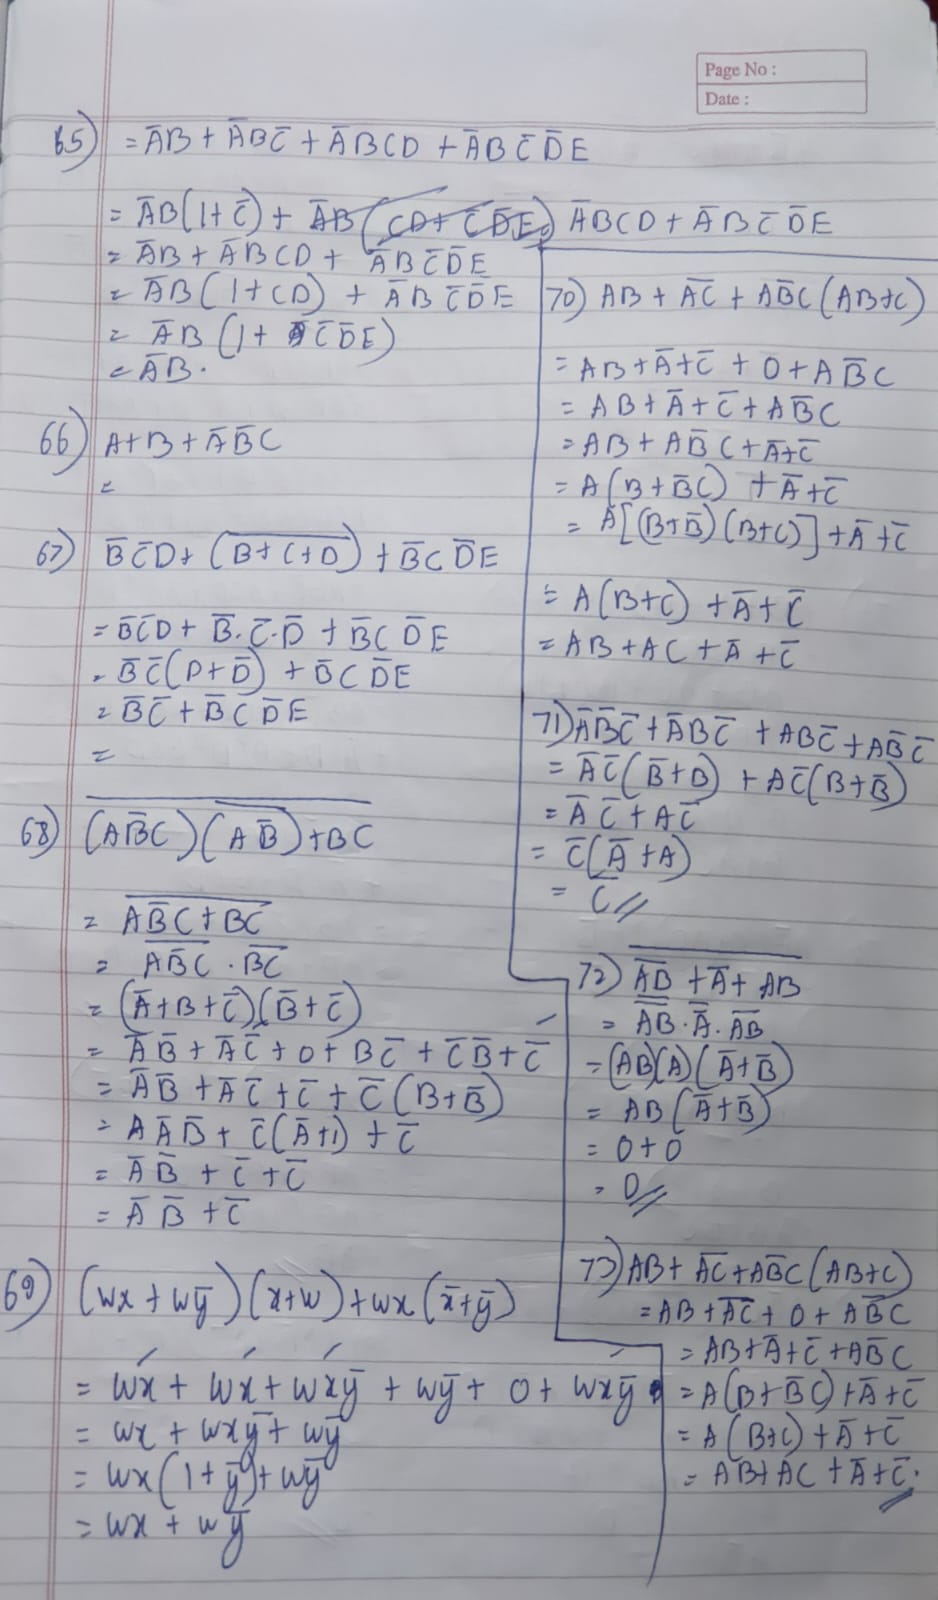 Page No :
Date :
65) = A̅B + A̅BC̅ + A̅BCD + A̅BC̅D̅E
= A̅B(1+C̅) + A̅BCD + A̅BC̅D̅E
= A̅B + A̅BCD + A̅BC̅D̅E
= A̅B(1+CD) + A̅BC̅D̅E
= A̅B(1+C̅D̅E)
= A̅B.
66) A+B+A̅B̅C
=
67) B̅C̅D+(‾B+C+D‾)+B̅CD̅E
= B̅C̅D + B̅.C̅.D̅ + B̅CD̅E
= B̅C̅(D+D̅) + B̅CD̅E
= B̅C̅ + B̅CD̅E
=
68) ‾(AB̅C)(‾AB̅‾)+BC‾
= ‾AB̅C+BC‾
= ‾AB̅C‾ . ‾BC‾
= (A̅+B+C̅)(B̅+C̅)
= A̅B̅ + A̅C̅ + 0 + BC̅ + C̅B̅ + C̅
= A̅B̅ + A̅C̅ + C̅ + C̅(B+B̅)
= AA̅B̅ + C̅(A̅+1) + C̅
= A̅B̅ + C̅ + C̅
= A̅B̅ + C̅
69) (wx + wy̅)(x+w)+wx(x̅+y̅)
= wx + wx + wxy̅ + wy̅ + 0 + wxy̅
= wx + wxy̅ + wy̅
= wx(1+y̅)+wy̅
= wx + wy̅
70) AB + ‾AC‾ + AB̅C(AB+C)
= AB+A̅+C̅ + 0 + AB̅C
= AB+A̅+C̅+AB̅C
= AB+AB̅C+A̅+C̅
= A(B+B̅C) + A̅+C̅
= A[(B+B̅)(B+C)]+A̅+C̅
= A(B+C) + A̅+C̅
= AB+AC+A̅+C̅
71) A̅B̅C̅ + A̅BC̅ + ABC̅+AB̅C̅
= A̅C̅(B̅+B) + AC̅(B+B̅)
= A̅C̅+AC̅
= C̅(A̅+A)
= C̅
72) ‾‾AB‾+A̅+AB‾
= ‾‾AB‾‾.A̿.‾AB‾
= (AB)(A)(A̅+B̅)
= AB(A̅+B̅)
= 0+0
= 0
73) AB+‾AC‾+AB̅C(AB+C)
= AB+‾AC‾+0+AB̅C
= AB+A̅+C̅+AB̅C
= A(B+B̅C)+A̅+C̅
= A(B+C)+A̅+C̅
= AB+AC+A̅+C̅.